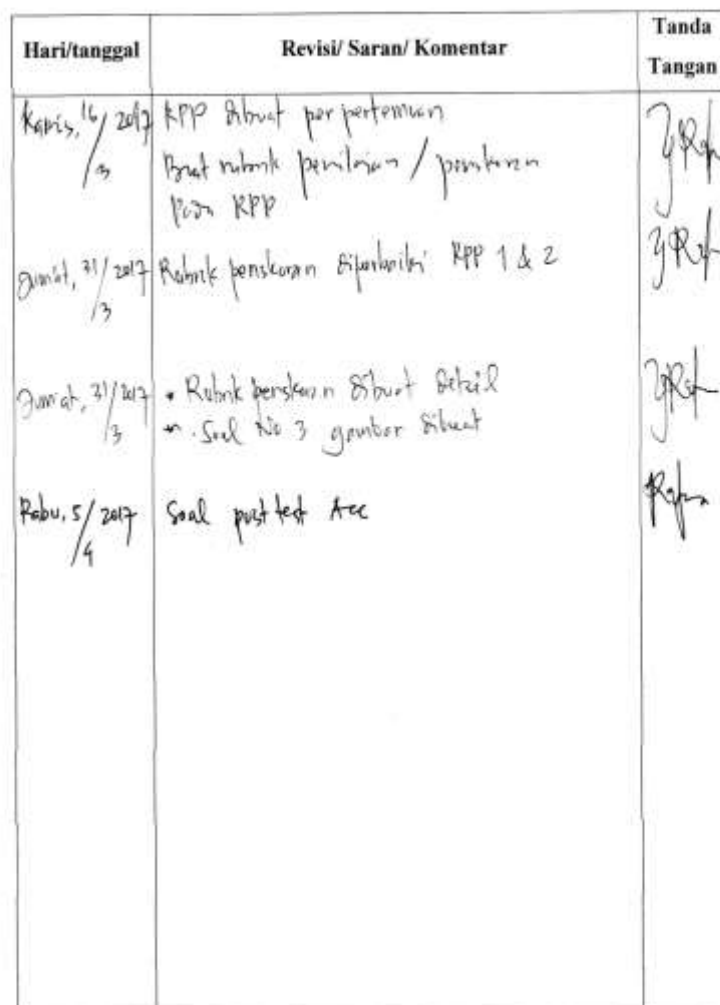 Hari/tanggal
Revisi/ Saran/ Komentar
Tanda
Tangan
Kamis, 16/3 2017
RPP dibuat per pertemuan
Buat rubrik penilaian / penskoran
Pada RPP
Jum'at, 31/3 2017
Rubrik penskoran diperbaiki RPP 1 & 2
Jum'at, 31/3 2017
• Rubrik penskoran dibuat detail
• Soal No 3 gambar dibuat
Rabu, 5/4 2017
Soal post test Acc